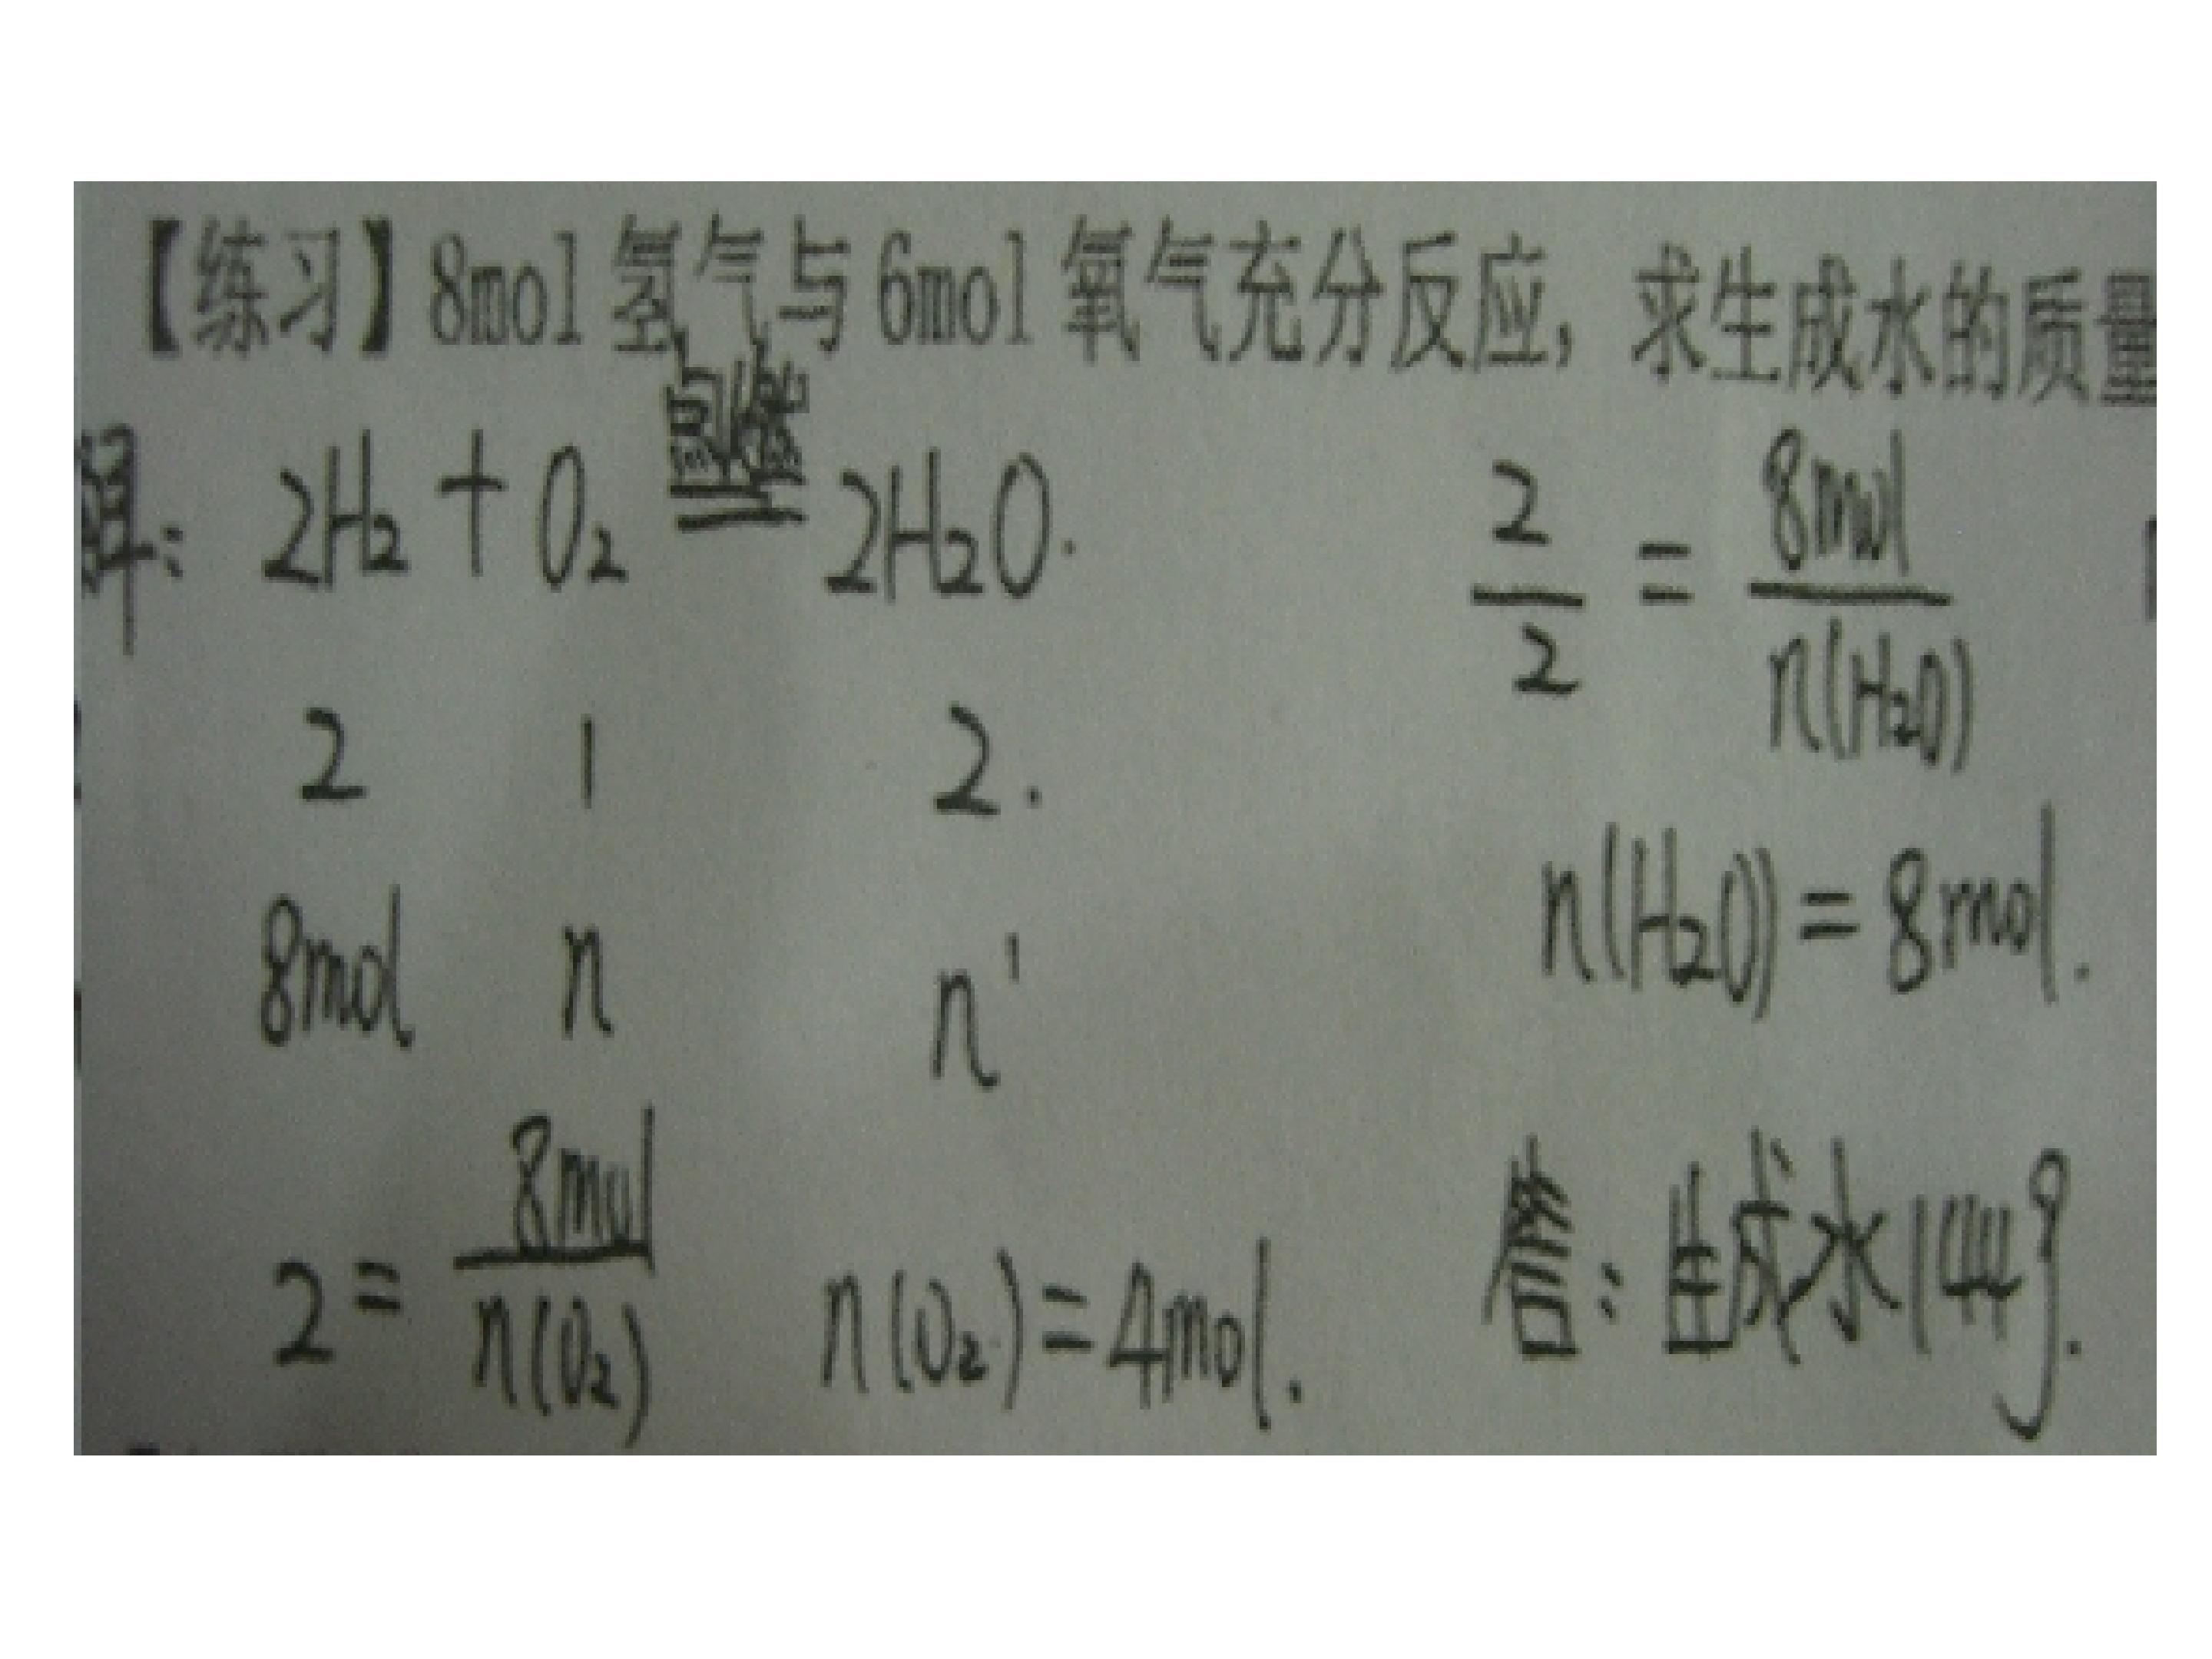 【练习】8mol 氢气与 6mol 氧气充分反应，求生成水的质量
解：2H₂ + O₂ 点燃 2H₂O.
2 1 2.
8mol n n'
2 = 8mol / n(O₂) n(O₂) = 4mol.
2 / 2 = 8mol / n(H₂O)
n(H₂O) = 8mol.
答：生成水144g.